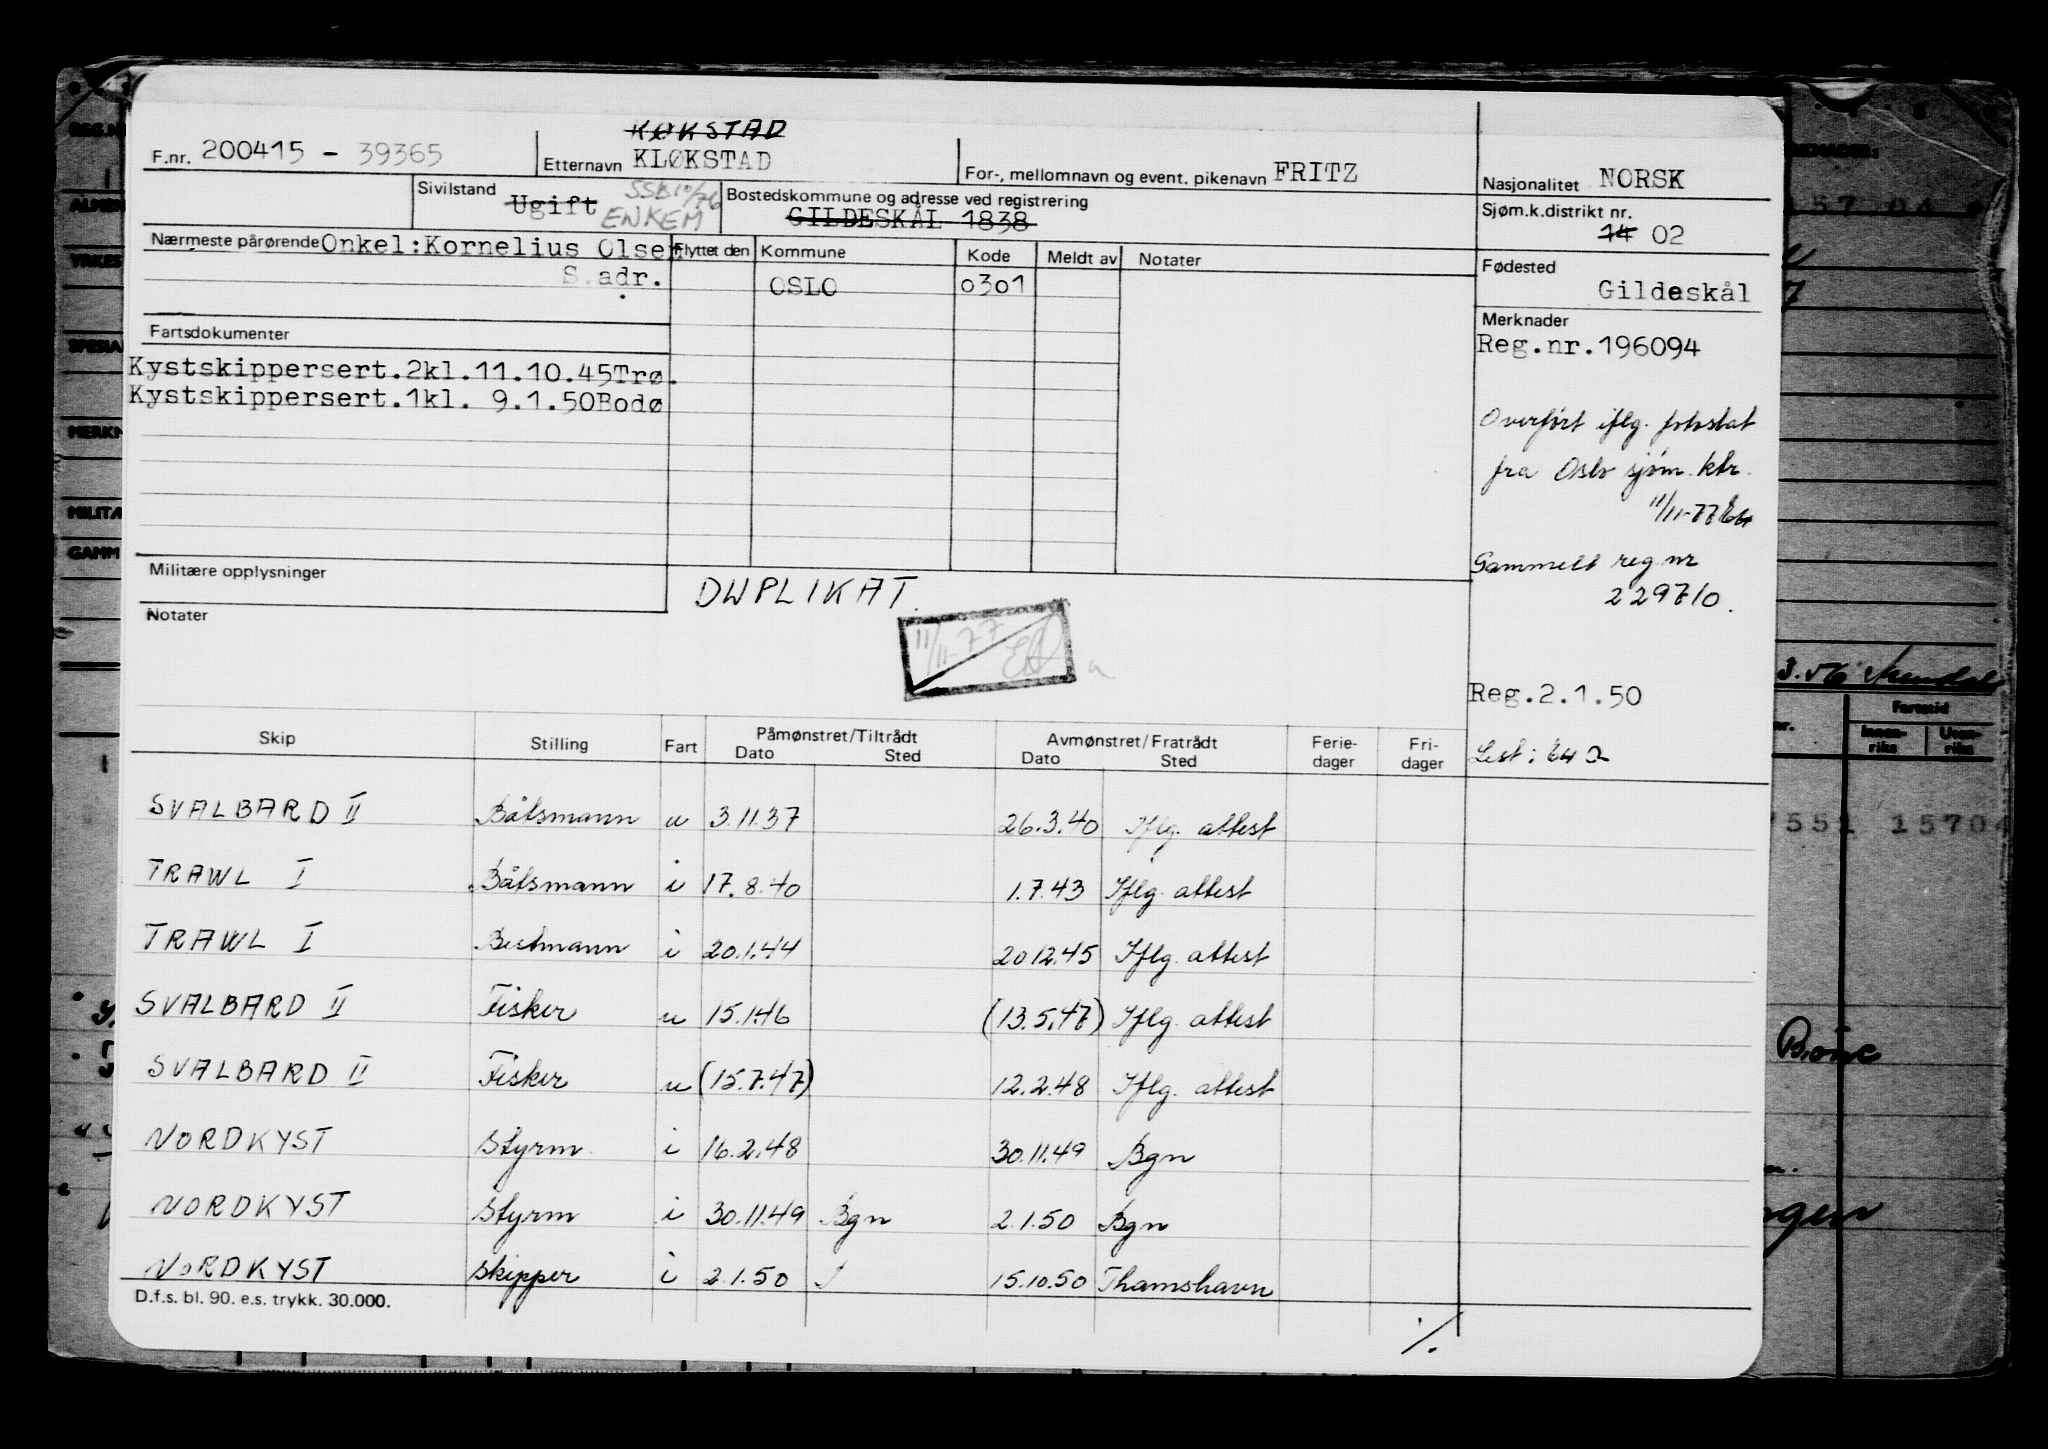 KØKSTAD
F.nr. 200415 - 39365 Etternavn KLØKSTAD For-, mellomnavn og event. pikenavn FRITZ Nasjonalitet NORSK
Sivilstand Ugift SSB 10/76 ENKEM
Bostedskommune og adresse ved registrering
GILDESKÅL 1838
Sjøm.k.distrikt nr.
14 02
Nærmeste pårørende Onkel:Kornelius Olsen
S.adr.
Flyttet den Kommune Kode Meldt av Notater
OSLO 0301
Fødested
Gildeskål
Fartsdokumenter
Kystskippersert.2kl.11.10.45Trø.
Kystskippersert.1kl. 9.1.50Bodø
Merknader
Reg.nr.196094
Overført iflg. fotostat
fra Oslo sjøm. ktr.
11/11-77
Gammelt reg nr
229710.
Reg.2.1.50
Militære opplysninger
Notater
DUPLIKAT.
11/11-77
Skip Stilling Fart Påmønstret/Tiltrådt Dato Sted Avmønstret/Fratrådt Dato Sted Ferie-dager Fri-dager
SVALBARD II Båtsmann u 3.11.37 26.3.40 Iflg. attest
TRAWL I Båtsmann i 17.8.40 1.7.43 Iflg. attest
TRAWL I Bestmann i 20.1.44 20.12.45 Iflg. attest
SVALBARD II Fisker u 15.1.46 (13.5.47) Iflg. attest
SVALBARD II Fisker u (15.7.47) 12.2.48 Iflg. attest
NORDKYST Styrm i 16.2.48 30.11.49 Bgn
NORDKYST Styrm i 30.11.49 Bgn 2.1.50 Bgn
NORDKYST skipper i 2.1.50 15.10.50 Thamshavn
D.f.s. bl. 90. e.s. trykk. 30.000.